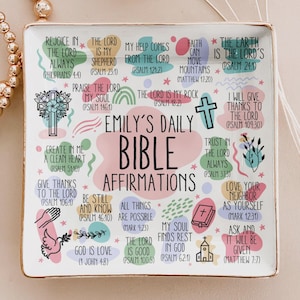 REJOICE IN
THE LORD
ALWAYS
(PHILIPPIANS 4:4)
THE LORD
IS MY
SHEPHERD
(PSALM 23:1)
MY HELP COMES
FROM THE LORD
(PSALM 121:2)
FAITH
CAN
MOVE
MOUNTAINS
(MATTHEW 17:20)
THE EARTH
IS THE
LORD'S
(PSALM 24:1)
PRAISE THE LORD
MY SOUL
(PSALM 146:1)
THE LORD IS MY ROCK
(PSALM 18:2)
I WILL GIVE
THANKS TO
THE LORD
(PSALM 109:30)
EMILY'S DAILY
BIBLE
AFFIRMATIONS
CREATE IN ME
A CLEAN HEART
(PSALM 51:10)
TRUST IN
THE LORD
ALWAYS
GIVE THANKS
TO THE LORD
(PSALM 107:1)
BE STILL
AND KNOW
(PSALM 46:10)
ALL THINGS
ARE POSSIBLE
(MARK 9:23)
LOVE YOUR
NEIGHBOR
AS YOURSELF
(MARK 12:31)
GOD IS LOVE
(1 JOHN 4:8)
THE LORD
IS GOOD
MY SOUL
FINDS REST
IN GOD
(PSALM 62:1)
ASK AND
IT WILL
BE GIVEN
(MATTHEW 7:7)